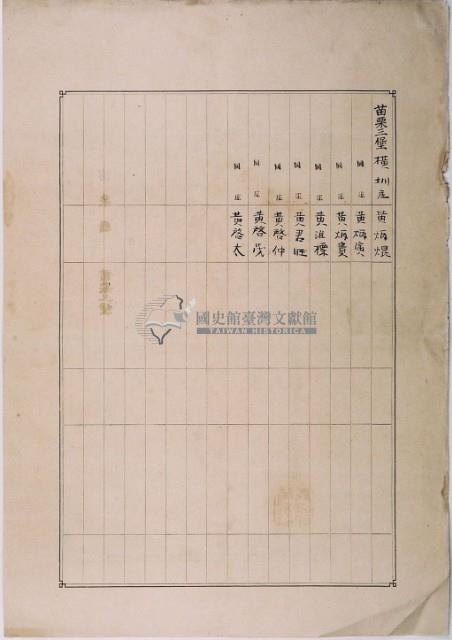 苗栗三堡 橫圳庄 黃炳焜
同 庄 黃炳寅
同 庄 黃炳貴
同 庄 黃
同 庄 黃君旺
同 庄 黃啓仲
同 庄 黃啓茂
同 庄 黃啓太
國史館臺灣文獻館
TAIWAN HISTORICA